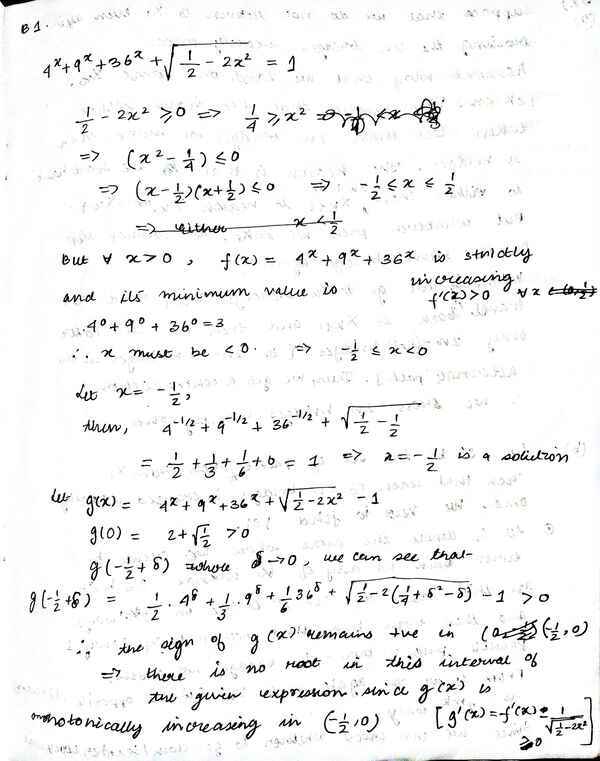 B1.
4^x + 9^x + 36^x + √(1/2 - 2x²) = 1
1/2 - 2x² ≥ 0 => 1/4 ≥ x²
=> (x² - 1/4) ≤ 0
=> (x - 1/2)(x + 1/2) ≤ 0 => -1/2 ≤ x ≤ 1/2
=> either x < 1/2
But ∀ x > 0, f(x) = 4^x + 9^x + 36^x is strictly increasing
and its minimum value is f'(x) > 0 ∀ x
4⁰ + 9⁰ + 36⁰ = 3
∴ x must be < 0. => -1/2 ≤ x < 0
Let x = -1/2,
then, 4^(-1/2) + 9^(-1/2) + 36^(-1/2) + √(1/2 - 1/2)
= 1/2 + 1/3 + 1/6 + 0 = 1 => x = -1/2 is a solution
Let g(x) = 4^x + 9^x + 36^x + √(1/2 - 2x²) - 1
g(0) = 2 + √(1/2) > 0
g(-1/2 + δ) where δ → 0, we can see that
g(-1/2 + δ) = 1/2 · 4^δ + 1/3 · 9^δ + 1/6 36^δ + √(1/2 - 2(1/4 + δ² - δ)) - 1 > 0
∴ the sign of g(x) remains +ve in (-1/2, 0)
=> there is no root in this interval of
the given expression since g(x) is
monotonically increasing in (-1/2, 0) [g'(x) = f'(x) - 1/√(1/2 - 2x²) ≥ 0]